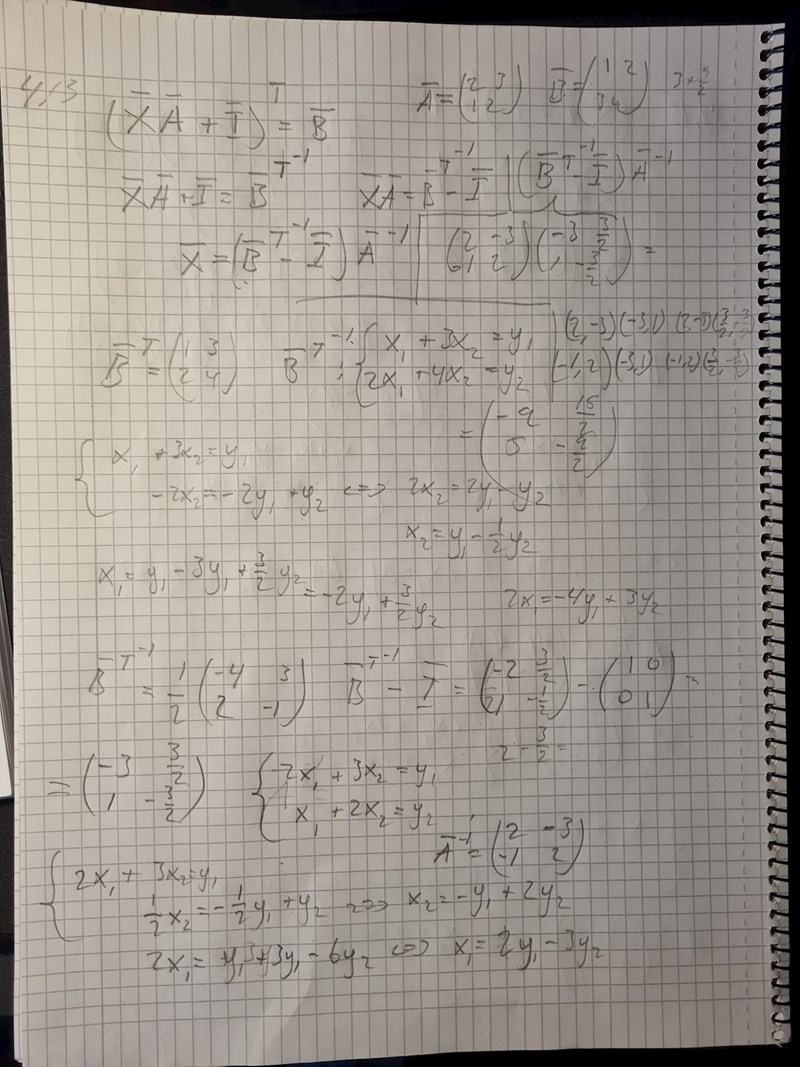 4.13
(X̄Ā + Ī)ᵀ = B̄
Ā = (2 3; 1 2) B̄ = (1 2; 3 4)
X̄Ā + Ī = B̄ᵀ⁻¹ X̄Ā = B̄ᵀ⁻¹ - Ī | (B̄ᵀ⁻¹ - Ī) Ā⁻¹
X̄ = (B̄ᵀ⁻¹ - Ī) Ā⁻¹ | (2 -3; -1 2)(-3 3/2; 1 -3/2) =
B̄ᵀ = (1 3; 2 4) B̄ᵀ⁻¹ : { x₁ + 3x₂ = y₁ | (2,-3)(-3,1) (2,-3)(3/2,-3/2)
2x₁ + 4x₂ = y₂ | (-1,2)(-3,1) (-1,2)(3/2,-3/2)
= (-9 15/2; 5 -9/2)
{ x₁ + 3x₂ = y₁
-2x₂ = -2y₁ + y₂ <=> 2x₂ = 2y₁ - y₂
x₂ = y₁ - 1/2 y₂
x₁ = y₁ - 3y₁ + 3/2 y₂ = -2y₁ + 3/2 y₂ 2x₁ = -4y₁ + 3y₂
B̄ᵀ⁻¹ = 1/2 (-4 3; 2 -1) B̄ᵀ⁻¹ - Ī = (-2 3/2; 1 -1/2) - (1 0; 0 1) =
2 - 3/2 =
= (-3 3/2; 1 -3/2) { 2x₁ + 3x₂ = y₁
x₁ + 2x₂ = y₂
Ā⁻¹ = (2 -3; -1 2)
{ 2x₁ + 3x₂ = y₁
1/2 x₂ = -1/2 y₁ + y₂ <=> x₂ = -y₁ + 2y₂
2x₁ = y₁ + 3y₁ - 6y₂ <=> x₁ = 2y₁ - 3y₂